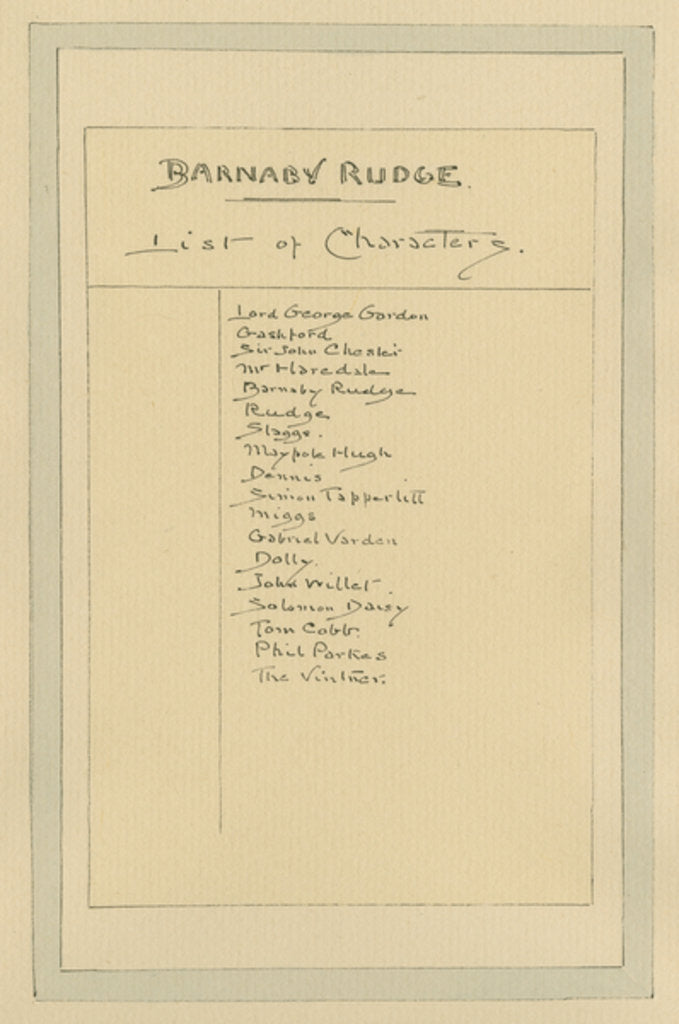 BARNABY RUDGE.
List of Characters.
Lord George Gordon
Gashford
Sir John Chester
Mr Haredale
Barnaby Rudge
Rudge
Staggs.
Maypole Hugh
Dennis
Simon Tappertitt
Miggs
Gabriel Varden
Dolly.
John Willet.
Solomon Daisy
Tom Cobb.
Phil Parkes
The Vintner.